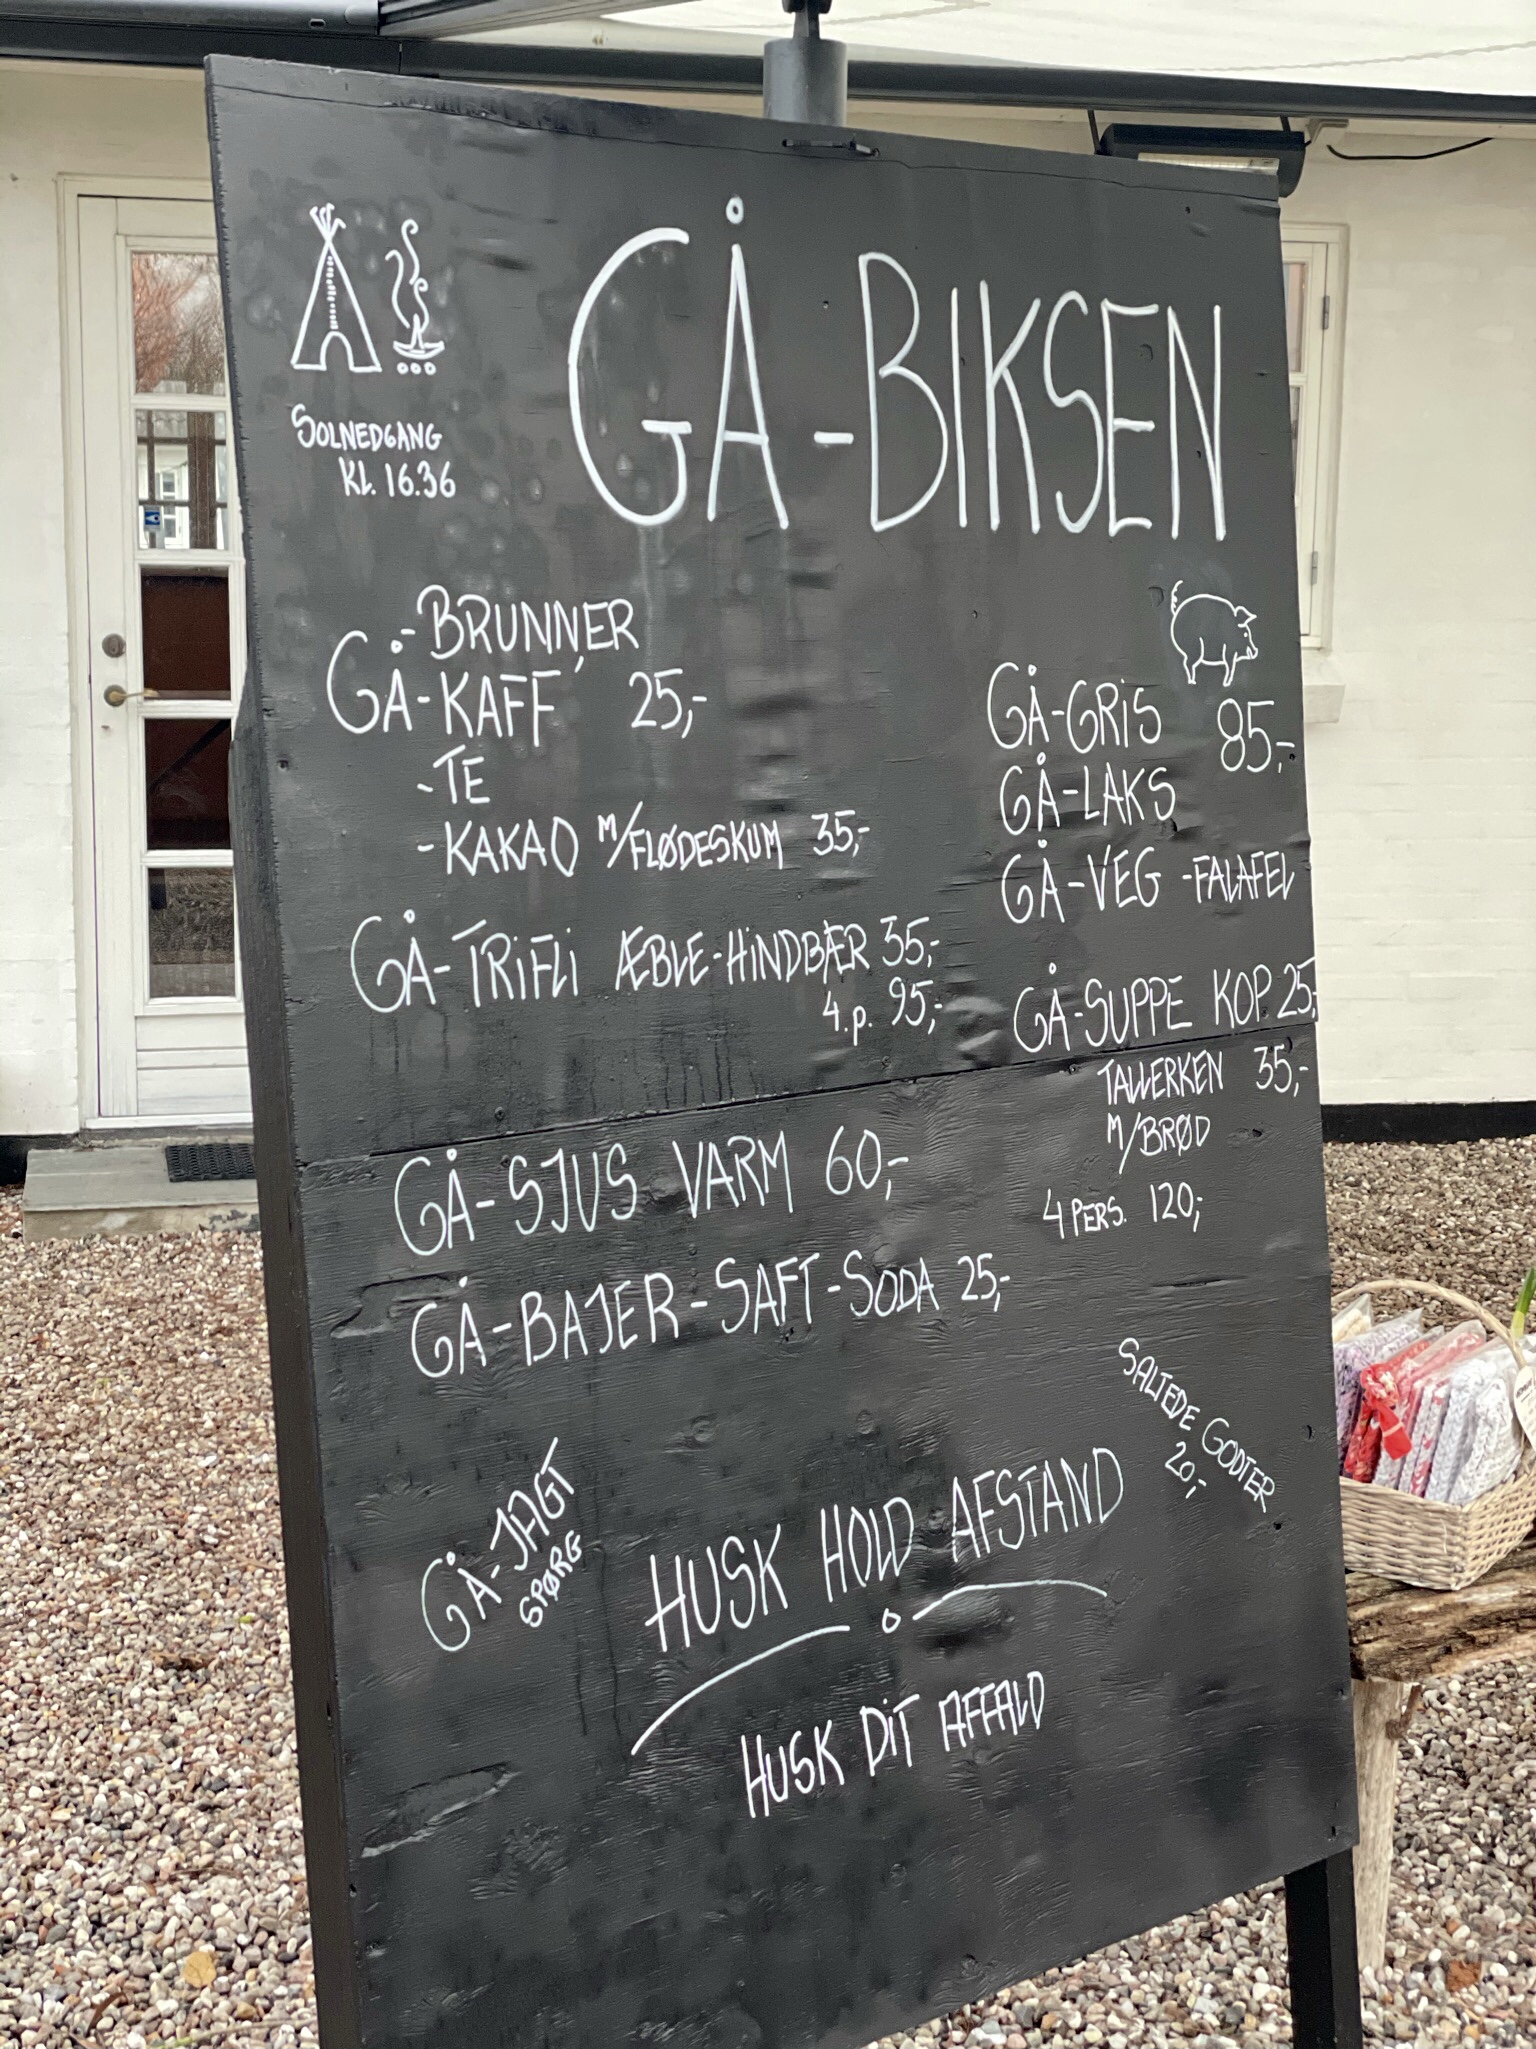 GÅ-BIKSEN
SOLNEDGANG
KL. 16.36
-BRUNNER
GÅ-KAFF' 25,-
-TE
-KAKAO M/FLØDESKUM 35,-
GÅ-TRIFLI ÆBLE-HINDBÆR 35,-
4.p. 95,-
GÅ-SJUS VARM 60,-
GÅ-BAJER-SAFT-SODA 25,-
GÅ-GRIS 85,-
GÅ-LAKS
GÅ-VEG -FALAFEL
GÅ-SUPPE KOP 25,-
TALLERKEN 35,-
M/BRØD
4 PERS. 120,-
SALTEDE GODTER
20,-
GÅ-JAGT
SPØRG
HUSK HOLD AFSTAND
HUSK DIT AFFALD